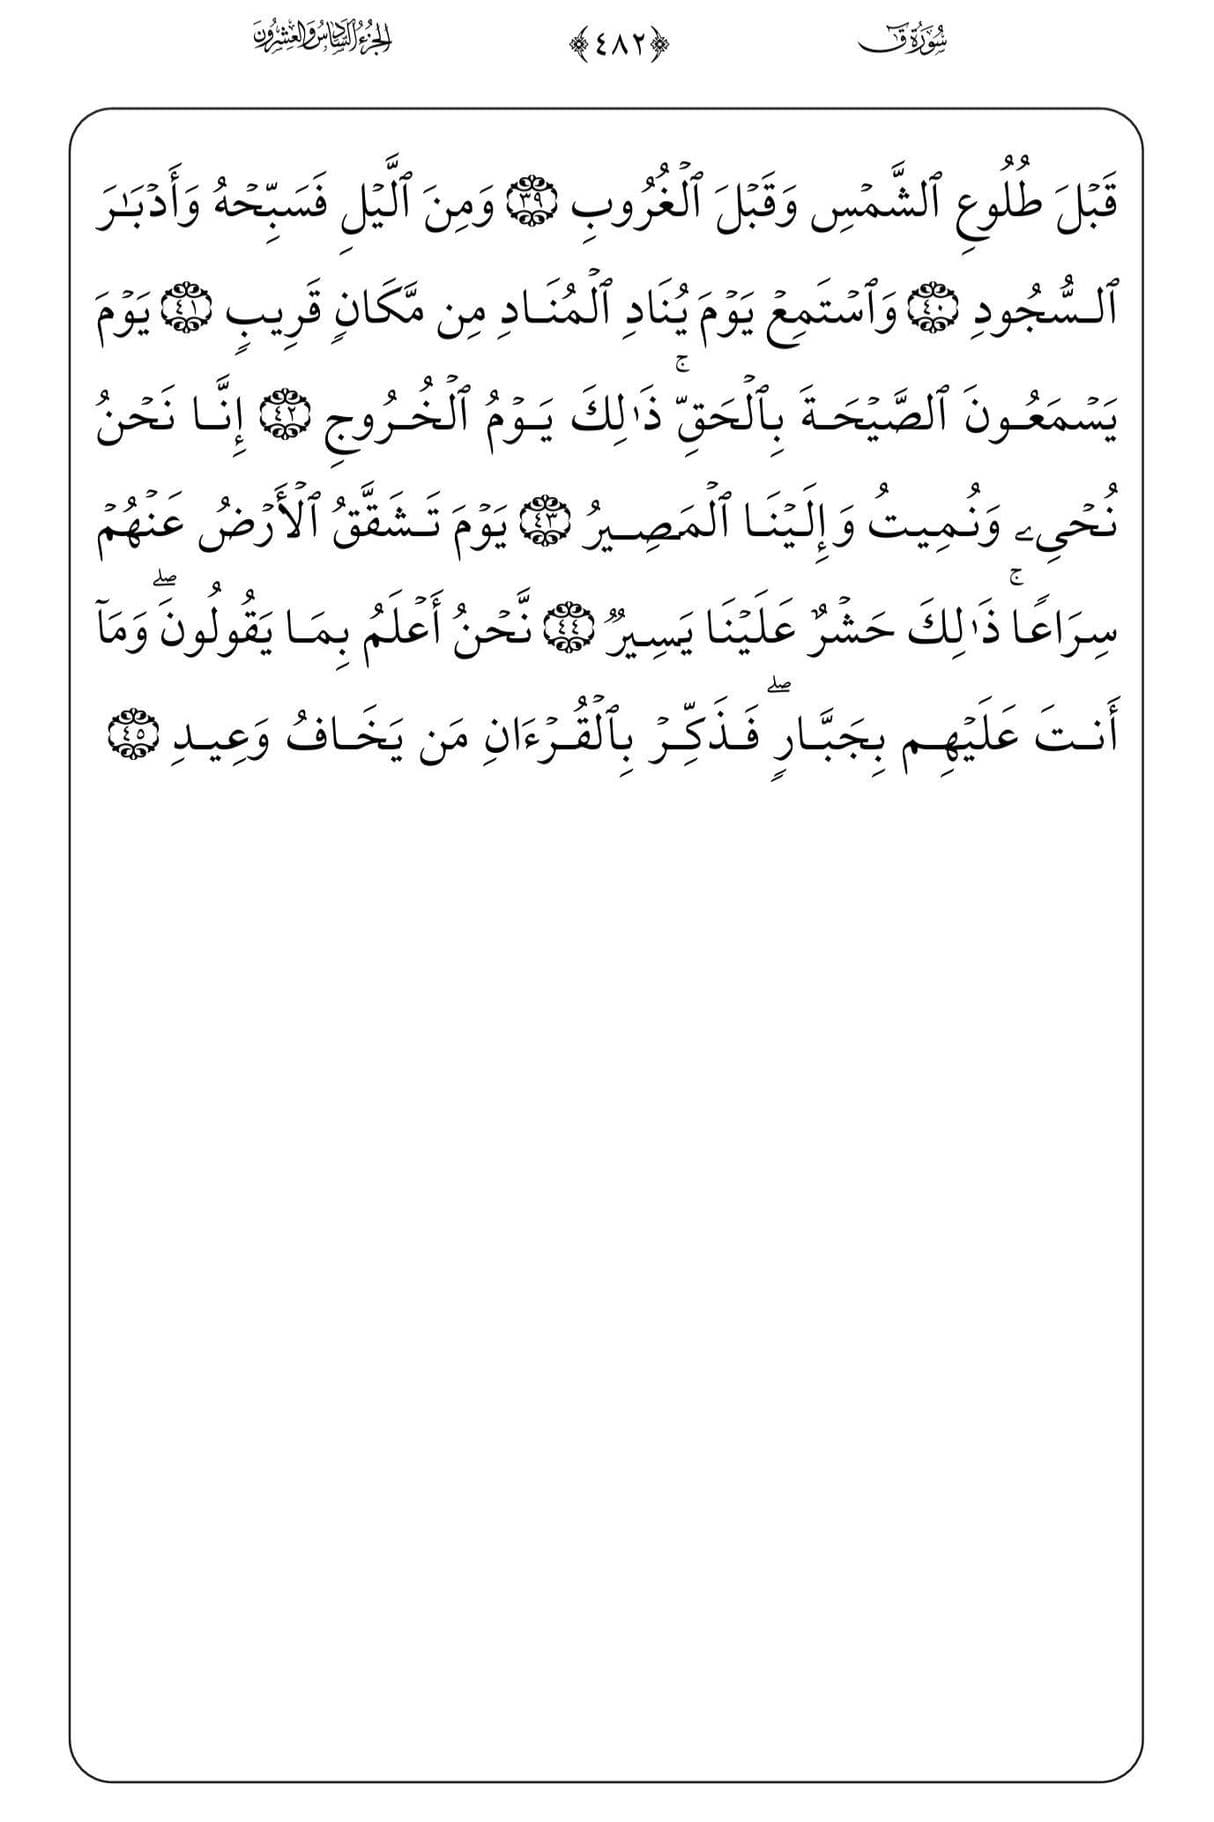 سُورَةُ قٓ ﴿٤٨٢﴾ الجُزْءُ السَّادِسُ وَالعِشْرُونَ
قَبۡلَ طُلُوعِ ٱلشَّمۡسِ وَقَبۡلَ ٱلۡغُرُوبِ ٣٩ وَمِنَ ٱلَّيۡلِ فَسَبِّحۡهُ وَأَدۡبَٰرَ
ٱلسُّجُودِ ٤٠ وَٱسۡتَمِعۡ يَوۡمَ يُنَادِ ٱلۡمُنَادِ مِن مَّكَانٖ قَرِيبٖ ٤١ يَوۡمَ
يَسۡمَعُونَ ٱلصَّيۡحَةَ بِٱلۡحَقِّۚ ذَٰلِكَ يَوۡمُ ٱلۡخُرُوجِ ٤٢ إِنَّا نَحۡنُ
نُحۡيِۦ وَنُمِيتُ وَإِلَيۡنَا ٱلۡمَصِيرُ ٤٣ يَوۡمَ تَشَقَّقُ ٱلۡأَرۡضُ عَنۡهُمۡ
سِرَاعٗاۚ ذَٰلِكَ حَشۡرٌ عَلَيۡنَا يَسِيرٞ ٤٤ نَّحۡنُ أَعۡلَمُ بِمَا يَقُولُونَۖ وَمَآ
أَنتَ عَلَيۡهِم بِجَبَّارٖۖ فَذَكِّرۡ بِٱلۡقُرۡءَانِ مَن يَخَافُ وَعِيدِ ٤٥